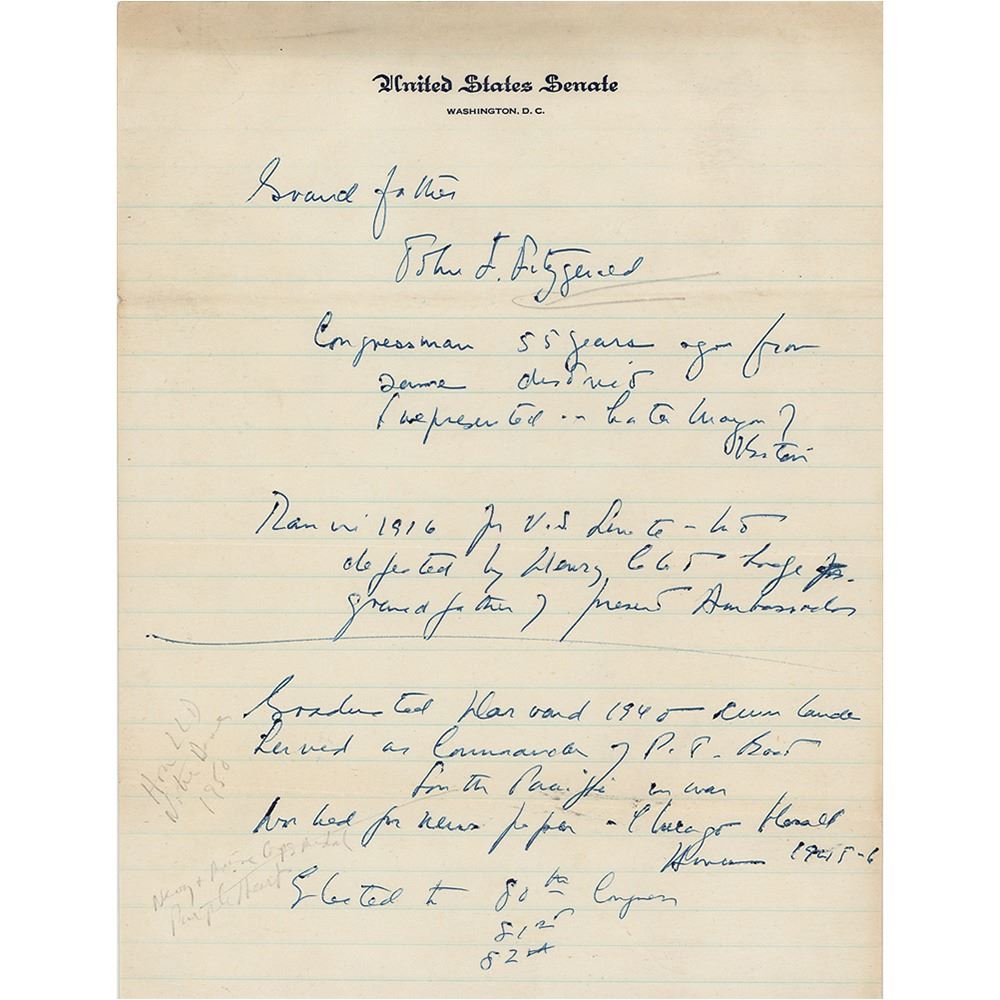 United States Senate
WASHINGTON, D. C.
Grand father
John F. Fitzgerald
Congressman 55 years ago from
same district
I represented -- Later Mayor of
Boston
Ran in 1916 for U.S. Senate -
defeated by Henry Cabot Lodge
grandfather of present Ambassador
Graduated Harvard 1940 cum laude
Served as Commander of P.T. Boat
South Pacific in war
Worked for news paper - Chicago Herald
1945-6
Elected to 80th Congress
81st
82nd
Hon LLD
Notre Dame
1950
Navy + Marine Corps Medal
Purple Heart